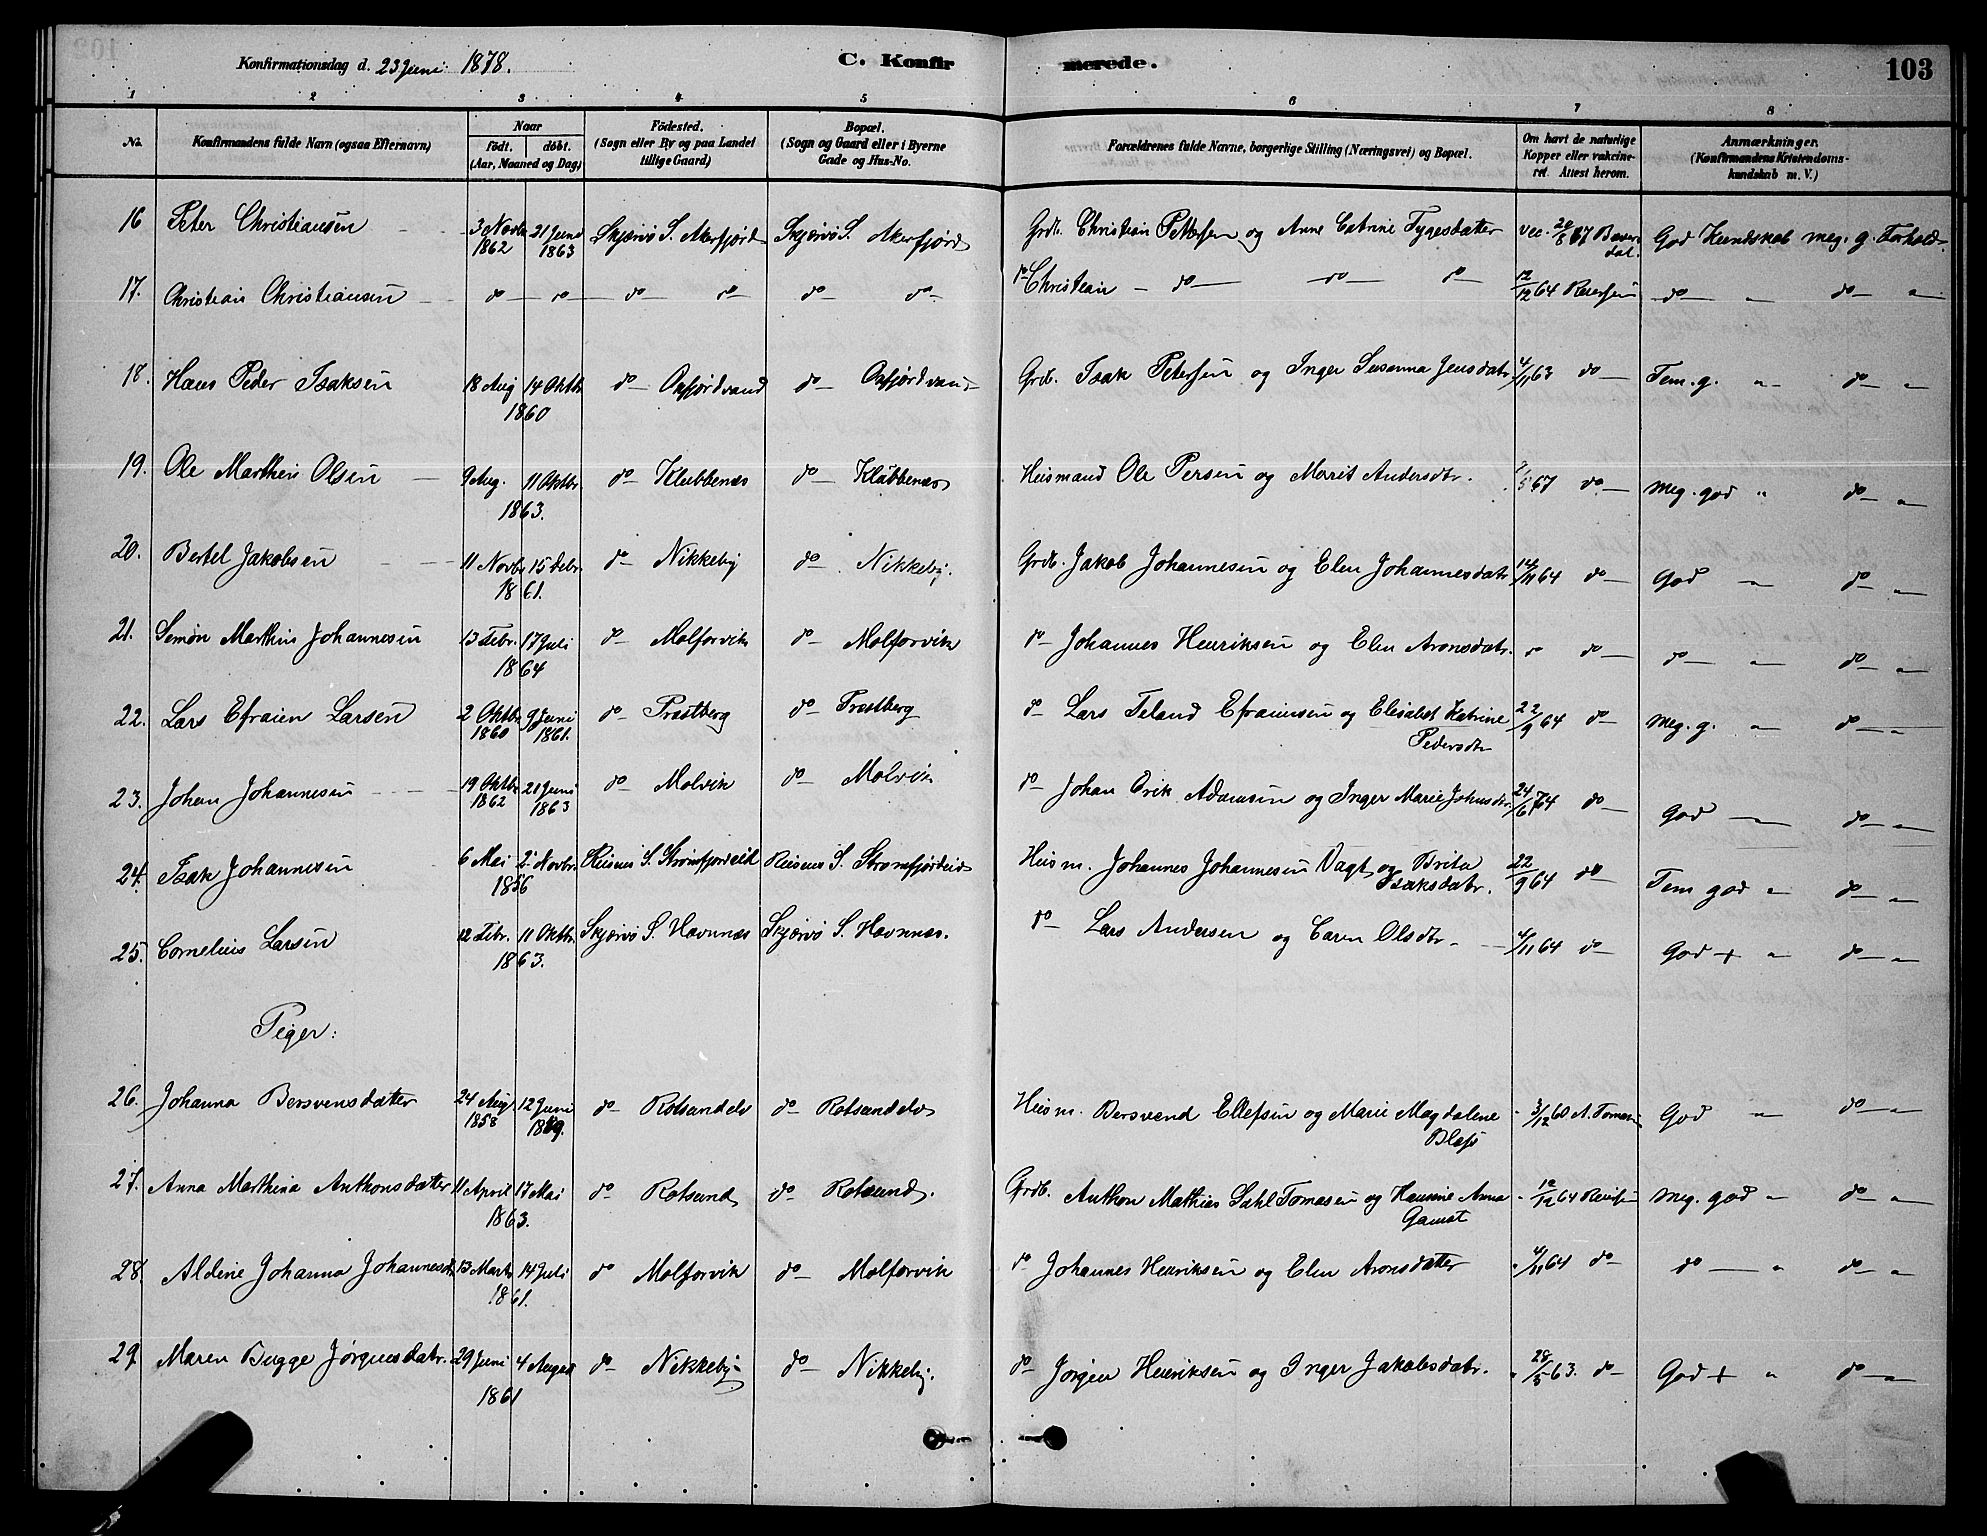 Konfirmationsdag d. 23 Juni 1878.
C. Konfirmerede.
103
1 2 3 4 5 6 7 8
No.
Konfirmandens fulde Navn (ogsaa Efternavn)
Naar
födt. döbt.
(Aar, Maaned og Dag)
Födested.
(Sogn eller By og paa Landet
tillige Gaard)
Bopæl.
(Sogn og Gaard eller i Byerne
Gade og Hus-No.
Forældrenes fulde Navne, borgerlige Stilling (Næringsvei) og Bopæl.
Om havt de naturlige
Kopper eller vakcine-
ret. Attest herom.
Anmærkninger.
(Konfirmandens Kristendoms-
kundskab m. V.)
16 Peter Christiansen 3 Novbr 1862 21 Juni 1863 Skjærvø S. Akerfjord Skjærvø S. Akerfjord Grdb. Christian Pettersen og Anne Catrine Tygesdatter vac. God Kundskab meg. g. Forhold
17. Christian Christiansen do do do do do do do Christian do do do 12/12 64 Reiersen do " do "
18. Hans Peder Isaksen 18 Aug 14 Oktbr 1860 do Oxfjordvand do Oxfjordvand Grdb. Isak Petersen og Inger Susanna Jensdatr 4/11 63 do Tem. g. " do "
19. Ole Marthin Olsen 9 Aug. 11 Oktbr. 1863. do Klubbenæs do Klubbenæs Husmand Ole Persen og Marit Andersdtr. 67 do meg. god " do "
20. Bertel Jakobsen 11 Novbr 15 Debr. 1861. do Nikkeby do Nikkeby. Grdb. Jakob Johannesen og Elen Johannesdatr 14/11 64 do God " do "
21. Simon Marthin Johannesen 13 Febr. 17 Juli 1864 do Molforvik do Molforvik do Johannes Henriksen og Elen Aronsdatr. do do do " do "
22. Lars Efraim Larsen 2 Oktbr 1860 9 Juni 1861. do Præstberg do Præstberg do Lars Efraimsen og Elisabet Katrine Pedersdtr 22/9 64 do meg. g. " do "
23. Johan Johannesen 19 Oktbr 1862 21 Juni 1863 do Molvik do Molvik do Johan Erik Adamsen og Inger Marie do God do "
24. Isak Johannesen 6 Mai 2 Novbr 1856 Reisens S. Strømfjordeid Reisens S. Strømfjordeid Husm. Johannes Johannesen Vagt og Brita Isaksdatr. 22/9 64 do Tem god " do "
25. Cornelius Larsen 12 Febr. 11 Oktbr. 1863. Skjærvø S. Havnnæs Skjærvø S. Havnnæs. do Lars Andersen og Caren Olsdtr. 4/11 64 do God + " do "
Piger:
26. Johanna Bersvensdatter 24 Aug 1858 12 Juni 1859. do Rotsundelv do Rotsundelv Husm. Bersvend Ellefsen og Marie Magdalene Blass 3/12 60 God " do "
27. Anna Marthina Anthonsdatter 11 April 17 Mai 1863. do Rotsund do Rotsund. Grdb. Anthon Mathias Dahl Tomasen og Hannine Anna Gamst 64 meg. god " do "
28. Aldine Johanna Johannesdt 13 Marts 14 Juli 1861. do Molforvik do Molforvik do Johannes Henriksen og Elen Aronsdatter 4/11 64 do do " do "
29. Maren Bugge Jørgensdatr. 29 Juni 4 August 1861 do Nikkeby do Nikkeby. do Jørgen Henriksen og Inger Jakobsdatr. 28/5 63. do God + " do "